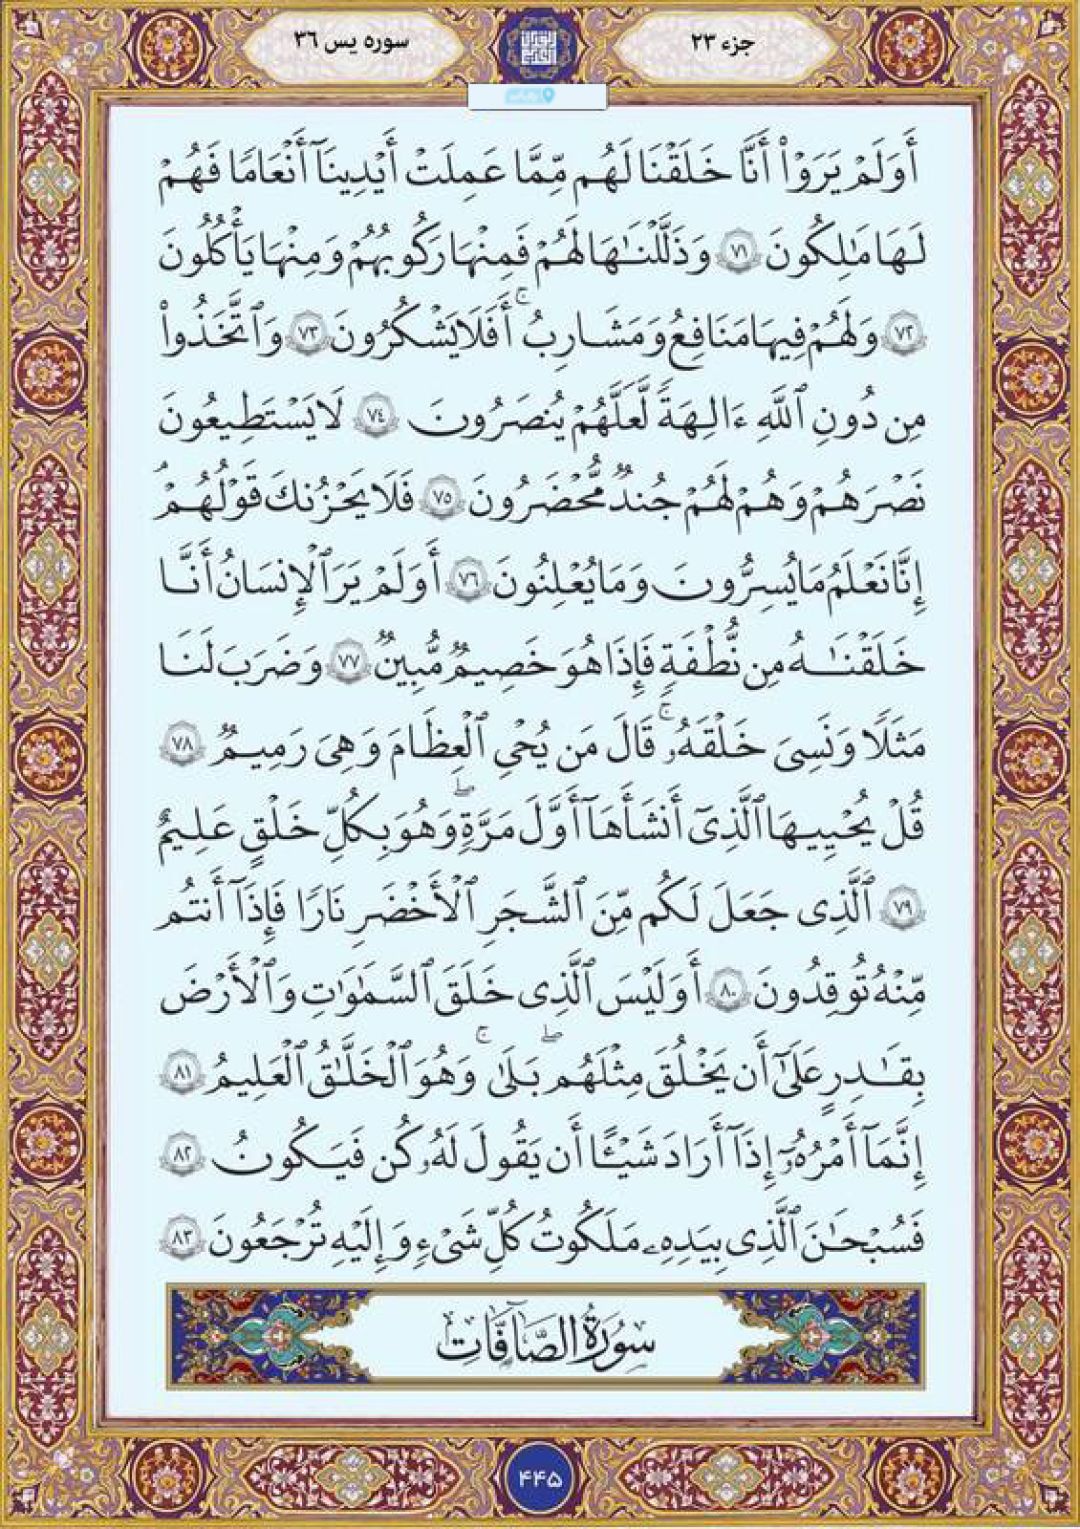 جزء ۲۳
سوره یس ۳۶
أَوَلَمْ يَرَوْا۟ أَنَّا خَلَقْنَا لَهُم مِّمَّا عَمِلَتْ أَيْدِينَآ أَنْعَامًا فَهُمْ
لَهَا مَالِكُونَ ٧١ وَذَلَّلْنَاهَا لَهُمْ فَمِنْهَا رَكُوبُهُمْ وَمِنْهَا يَأْكُلُونَ
٧٢ وَلَهُمْ فِيهَا مَنَافِعُ وَمَشَارِبُ ۚ أَفَلَا يَشْكُرُونَ ٧٣ وَٱتَّخَذُوا۟
مِن دُونِ ٱللَّهِ ءَالِهَةً لَّعَلَّهُمْ يُنصَرُونَ ٧٤ لَا يَسْتَطِيعُونَ
نَصْرَهُمْ وَهُمْ لَهُمْ جُندٌ مُّحْضَرُونَ ٧٥ فَلَا يَحْزُنكَ قَوْلُهُمْ ۘ
إِنَّا نَعْلَمُ مَا يُسِرُّونَ وَمَا يُعْلِنُونَ ٧٦ أَوَلَمْ يَرَ ٱلْإِنسَانُ أَنَّا
خَلَقْنَٰهُ مِن نُّطْفَةٍ فَإِذَا هُوَ خَصِيمٌ مُّبِينٌ ٧٧ وَضَرَبَ لَنَا
مَثَلًا وَنَسِىَ خَلْقَهُۥ ۚ قَالَ مَن يُحْىِ ٱلْعِظَامَ وَهِىَ رَمِيمٌ ٧٨
قُلْ يُحْيِيهَا ٱلَّذِىٓ أَنشَأَهَآ أَوَّلَ مَرَّةٍ ۖ وَهُوَ بِكُلِّ خَلْقٍ عَلِيمٌ
٧٩ ٱلَّذِى جَعَلَ لَكُم مِّنَ ٱلشَّجَرِ ٱلْأَخْضَرِ نَارًا فَإِذَآ أَنتُم
مِّنْهُ تُوقِدُونَ ٨٠ أَوَلَيْسَ ٱلَّذِى خَلَقَ ٱلسَّمَٰوَٰتِ وَٱلْأَرْضَ
بِقَٰدِرٍ عَلَىٰٓ أَن يَخْلُقَ مِثْلَهُم ۖ بَلَىٰ ۚ وَهُوَ ٱلْخَلَّٰقُ ٱلْعَلِيمُ ٨١
إِنَّمَآ أَمْرُهُۥٓ إِذَآ أَرَادَ شَيْـًٔا أَن يَقُولَ لَهُۥ كُن فَيَكُونُ ٨٢
فَسُبْحَٰنَ ٱلَّذِى بِيَدِهِۦ مَلَكُوتُ كُلِّ شَىْءٍ وَإِلَيْهِ تُرْجَعُونَ ٨٣
سُورَةُ الصَّافَّات
۴۴۵